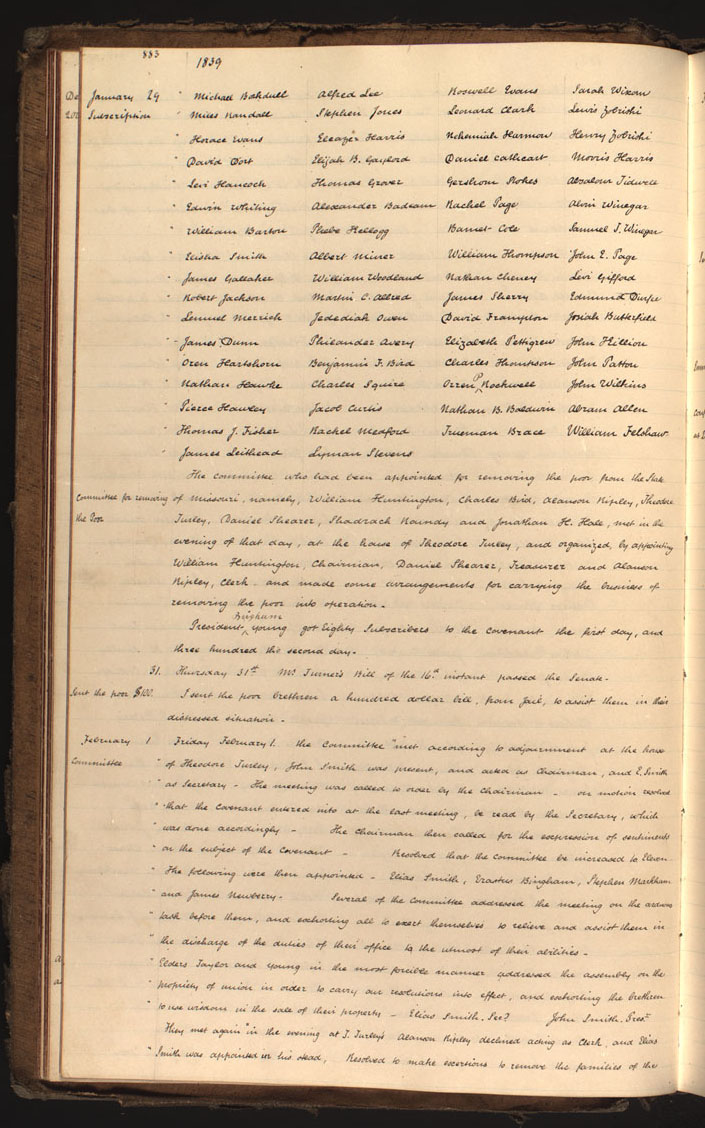 883
1839
January 29 " Michael Bohdull Alfred Lee Roswell Evans Sarah Wixom
Subscription " Miles Randall Stephen Jones Leonard Clark Lewis Zobriski
" Horace Evans Eleazer Harris Nehemiah Harmon Henry Zobriski
" David Dort Elijah B. Gaylord Daniel Cathcart Morris Harris
" Levi Hancock Thomas Grover Gershom Stokes Absalom Tidwell
" Edwin Whiting Alexander Badeam Rachel Page Alvin Winegar
" William Barton Phebe Kellogg Barnet Cole Samuel T. Winegar
" Elisha Smith Albert Miner William Thompson John E. Page
" James Gallaher William Woodland Nathan Cheney Levi Gifford
" Robert Jackson Martin C. Allred James Sherry Edmund Durfee
" Lemuel Merrick Jedediah Owen David Frampton Josiah Butterfield
" James Dunn Philander Avery Elizabeth Pettigrew John Killion
" Oren Hartshorn Benjamin F. Bird Charles Thompson John Patton
" Nathan Hawke Charles Squire Orren P Rockwell John Wilkins
" Pierce Hawley Jacob Curtis Nathan B. Baldwin Abram Allen
" Thomas J. Fisher Rachel Medford Trueman Brace William Felshaw
" James Leithead Lyman Stevens
The committee who had been appointed for removing the poor from the State
Committee for removing the Poor
of Missouri, namely, William Huntington, Charles Bird, Alanson Ripley, Theodore
Turley, Daniel Shearer, Shadrach Roundy and Jonathan H. Hale, met in the
evening of that day, at the house of Theodore Turley, and organized, by appointing
William Huntington, Chairman, Daniel Shearer, Treasurer and Alanson
Ripley, Clerk - and made some arrangements for carrying the business of
removing the poor into operation -
President Brigham Young got Eighty Subscribers to the covenant the first day, and
three hundred the second day -
31. Thursday 31st Mr Turner's Bill of the 16th instant passed the Senate -
Sent the poor $100. I sent the poor brethren a hundred dollar bill, from Jail, to assist them in their
distressed situation -
February 1 Friday February 1. The Committee "met according to adjournment at the house
Committee " of Theodore Turley, John Smith was present, and acted as Chairman, and E. Smith
" as Secretary - The meeting was called to order by the Chairman - on motion resolved
" that the Covenant entered into at the last meeting, be read by the Secretary, which
" was done accordingly - The Chairman then called for the expression of sentiments
" on the subject of the Covenant - Resolved that the Committee be increased to Eleven -
" The following were then appointed - Elias Smith, Erastus Bingham, Stephen Markham
" and James Newberry - Several of the Committee addressed the meeting on the arduous
" task before them, and exhorting all to exert themselves to relieve and assist them in
" the discharge of the duties of their office to the utmost of their abilities -
" Elders Taylor and Young in the most forcible manner addressed the assembly on the
" propriety of union in order to carry our resolutions into effect, and exhorting the brethren
" to use wisdom in the sale of their property - Elias Smith. Secy John Smith. Prest
They met again "in the evening at T. Turley's Alanson Ripley declined acting as Clerk, and Elias
" Smith was appointed in his stead, Resolved to make exertions to remove the families of the